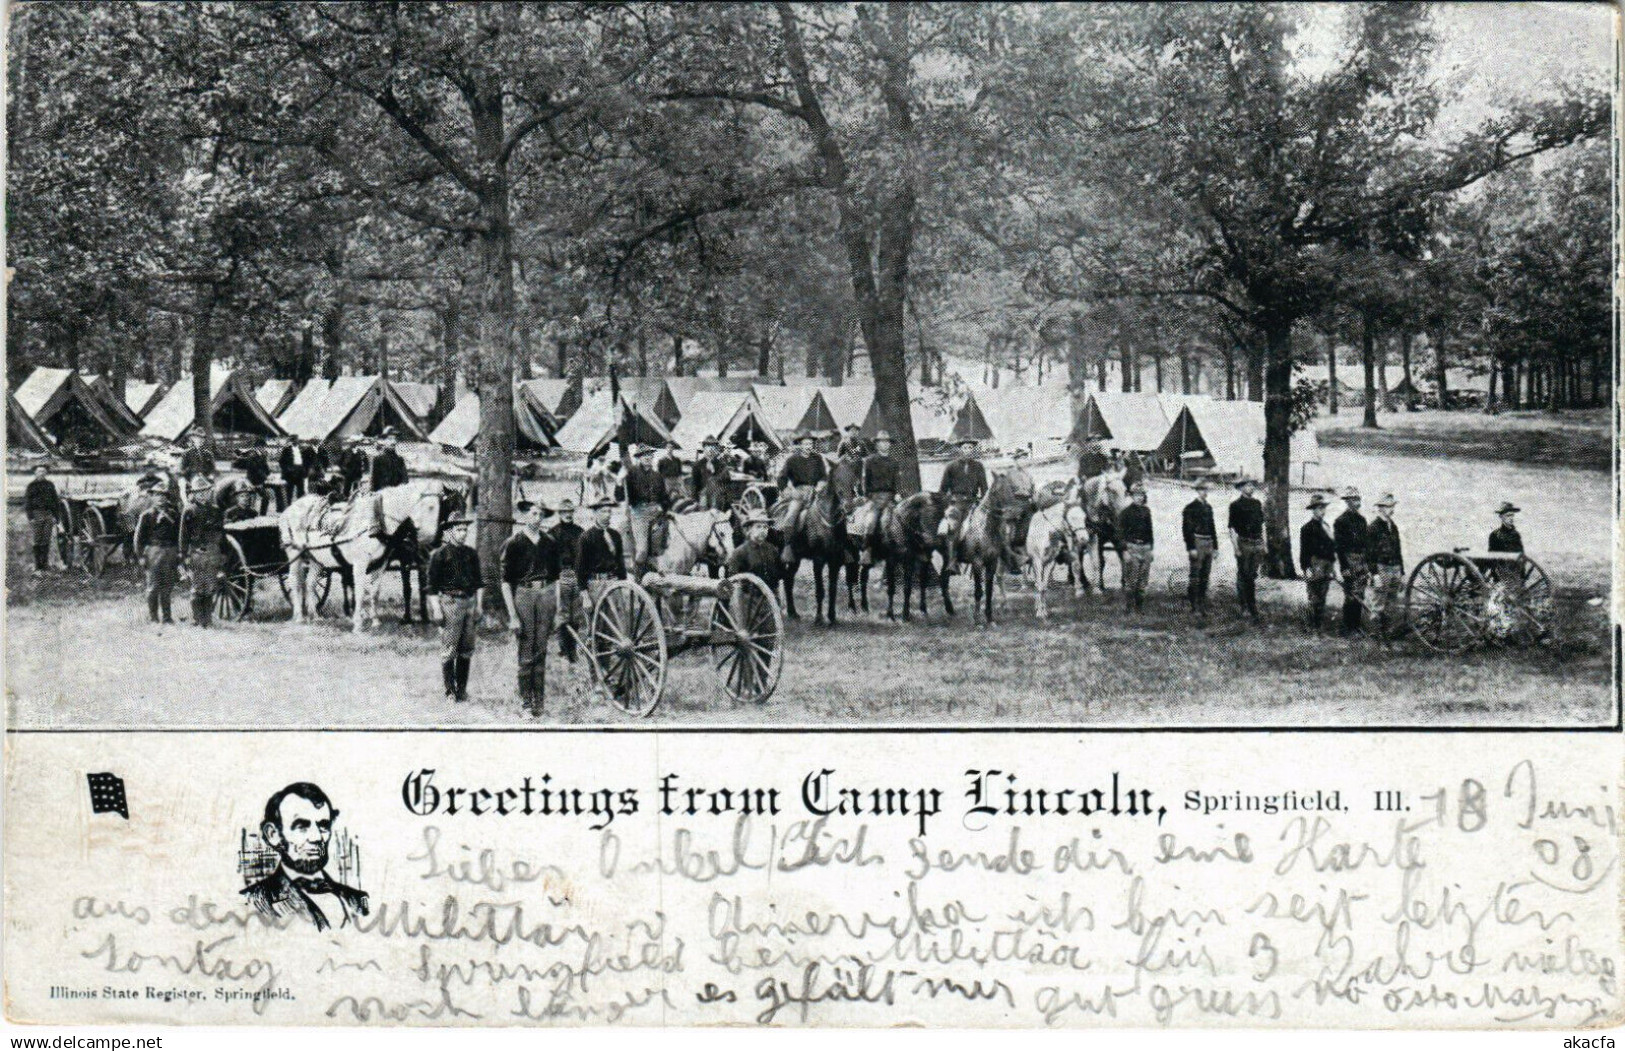 Greetings from Camp Lincoln, Springfield, Ill. 18 Juni
08
Lieber Onkel Ich sende dir eine Karte
aus dem Milittär v Amerrika ich bin seit letzten
Sontag in Springfield beim Milittär für 3 Jahre vielße
noch länger es gefält mir gut gruss
Illinois State Register, Springfield.
delcampe.net
akacfa